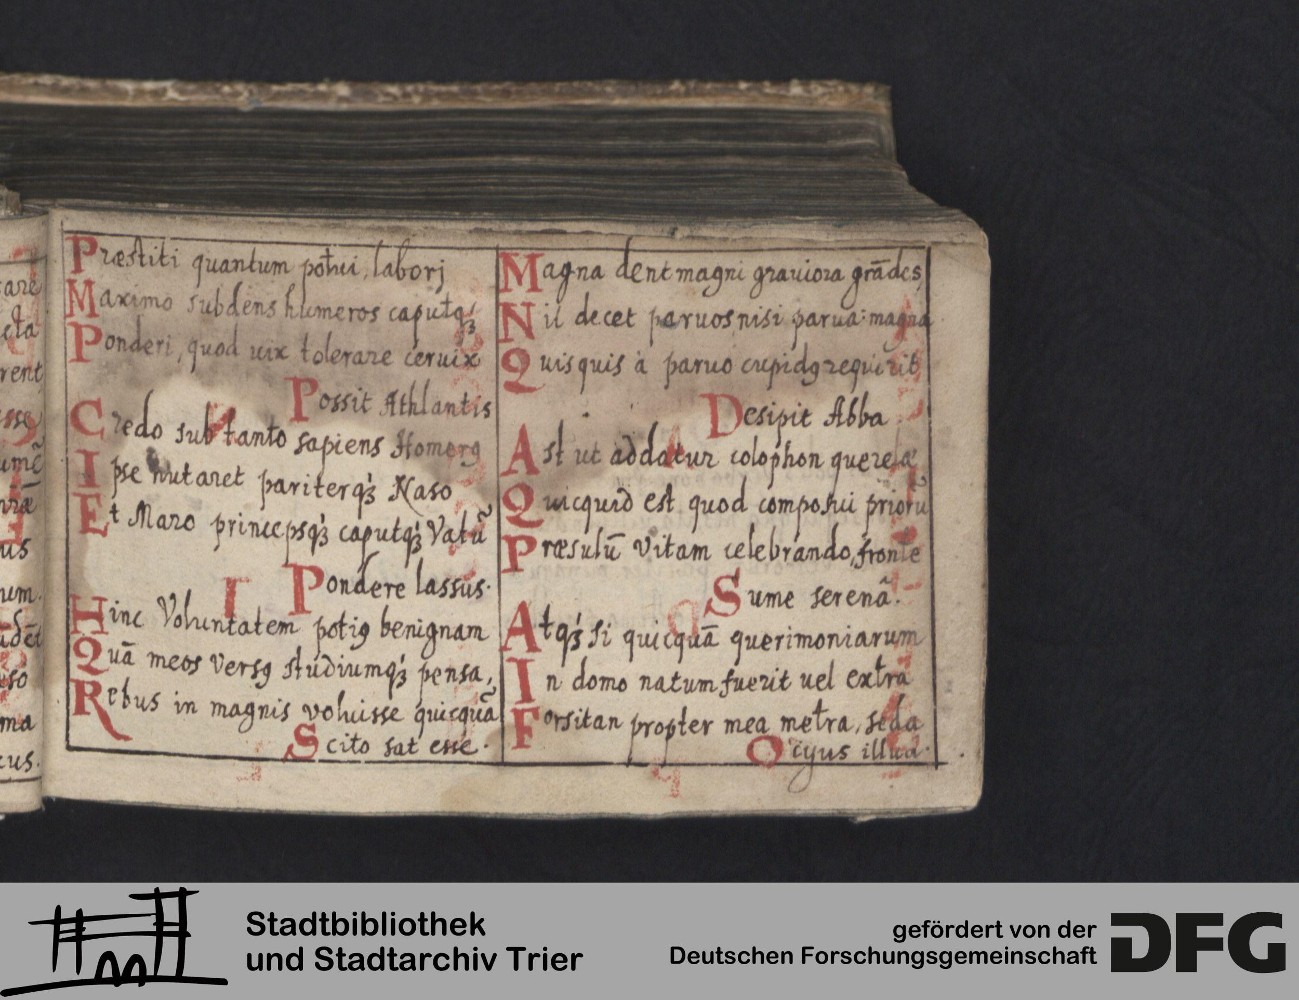 Præstiti quantum potui, laborj
Maximo subdens humeros caputqꝫ
Ponderi, quod uix tolerare ceruix
Possit Athlantis
Credo sub tanto sapiens Homerꝯ
Ipse nutaret pariterqꝫ Naso
Et Maro princepsqꝫ caputqꝫ Vatū
Pondere lassus.
Hinc Voluntatem potiꝯ benignam
Quā meos versꝯ studiumqꝫ pensa,
Rebus in magnis voluisse quicquā
Scito sat esse.
Magna dent magni grauiora grādes
Nil decet paruos nisi parua: magna
Quisquis à paruo cupidꝯ requirit
Desipit Abba
Ast ut addatur colophon querelæ
Quicquid est quod composui priorū
Præsulū Vitam celebrando, fronte
Sume serenā.
Atqꝫ si quicquā querimoniarum
In domo natum fuerit uel extra
Forsitan propter mea metra, seda
Ocyus illua.
are
cta
rent
umē
us
um.
ma
cus.
Stadtbibliothek
und Stadtarchiv Trier
gefördert von der
Deutschen Forschungsgemeinschaft
DFG